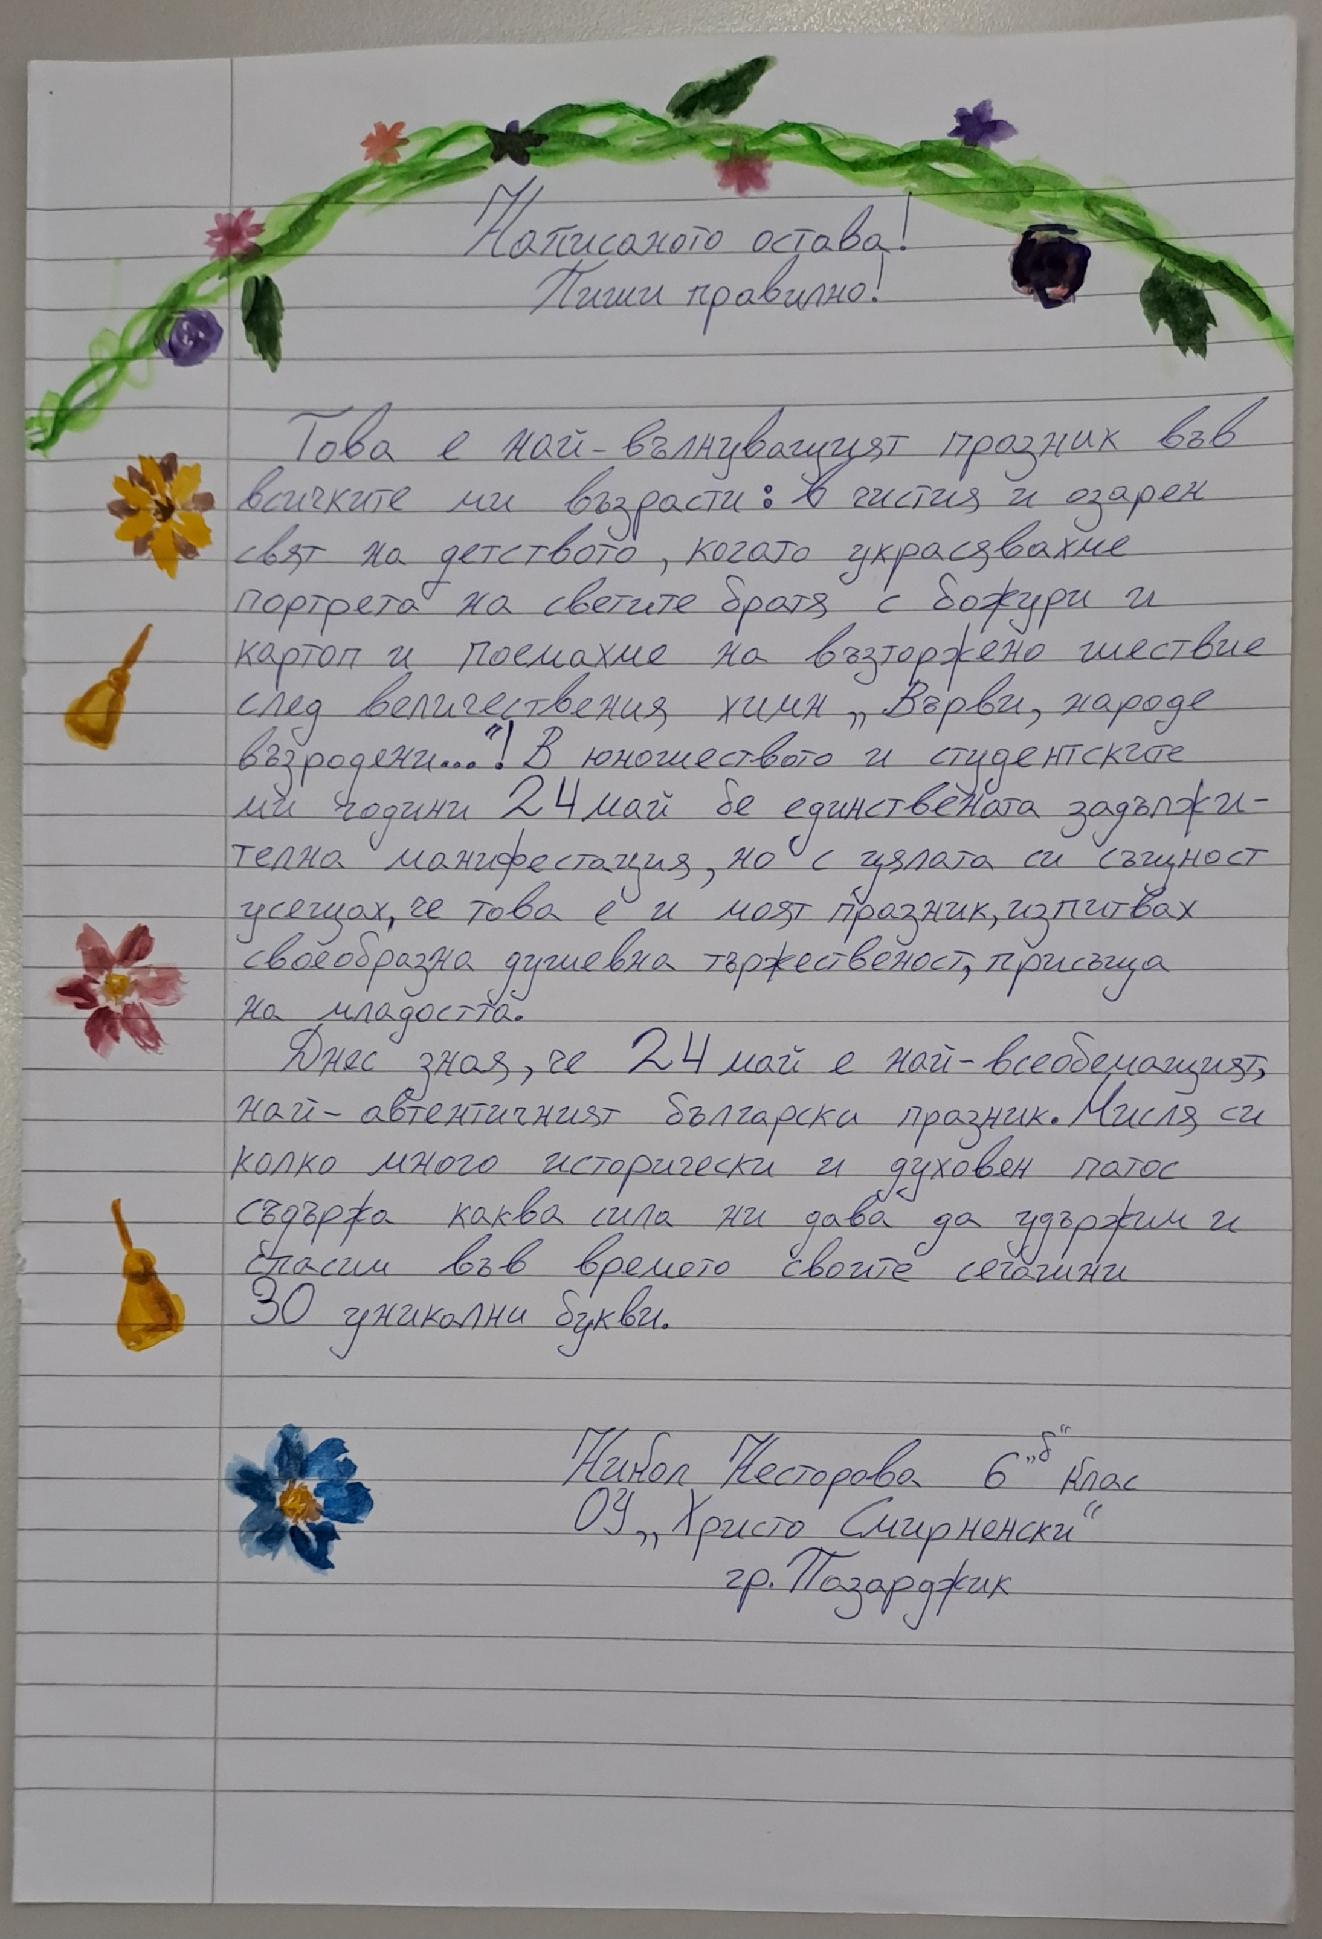 Написаното остава!
Пиши правилно!
Това е най-вълнуващият празник във
всичките ми възрасти: в чистия и озарен
свят на детството, когато украсявахме
портрета на светите братя с божури и
картоп и поемахме на възторжено шествие
след величествения химн „Върви, народе
възродени..."! В юношеството и студентските
ми години 24 май бе единствената задължи-
телна манифестация, но с цялата си същност
усещах, че това е и моят празник, изпитвах
своеобразна душевна тържественост, присъща
на младостта.
Днес зная, че 24 май е най-всеобемащият,
най-автентичният български празник. Мисля си
колко много исторически и духовен патос
съдържа каква сила ни дава да удържим и
спасим във времето своите сегашни
30 уникални букви.
Нибол Несторова 6 „б" клас
ОУ „Христо Смирненски"
гр. Пазарджик